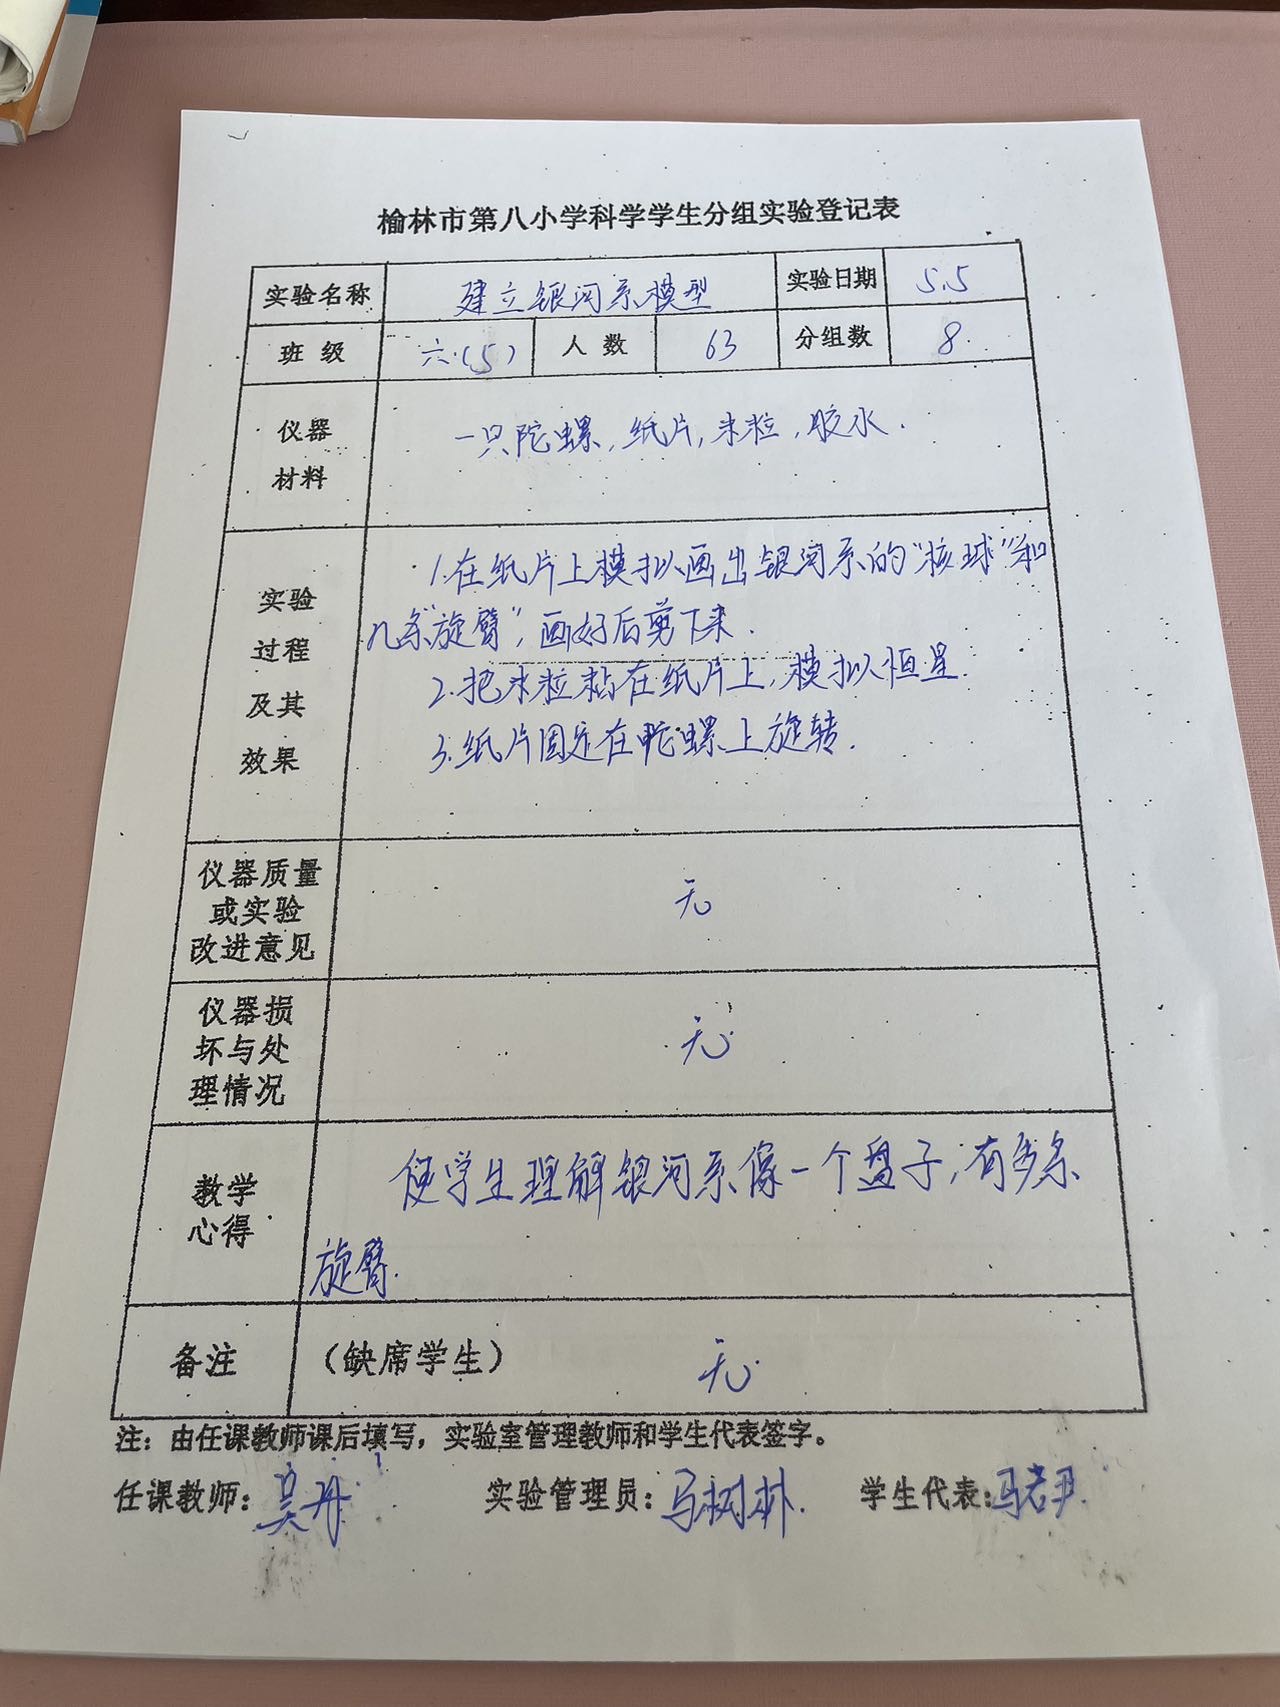 榆林市第八小学科学学生分组实验登记表
实验名称 建立银河系模型 实验日期 5.5
班 级 六.(5) 人 数 63 分组数 8.
仪器
材料
一只陀螺,纸片,米粒,胶水.
实验
过程
及其
效果
1.在纸片上模拟画出银河系的“核球”和
几条“旋臂”,画好后剪下来.
2.把米粒粘在纸片上,模拟恒星.
3.纸片固定在陀螺上旋转.
仪器质量
或实验
改进意见
无
仪器损
坏与处
理情况
无
教学
心得
使学生理解银河系像一个盘子,有多条
旋臂.
备注 (缺席学生) 无
注:由任课教师课后填写,实验室管理教师和学生代表签字。
任课教师:吴丹 实验管理员:马树林. 学生代表:马